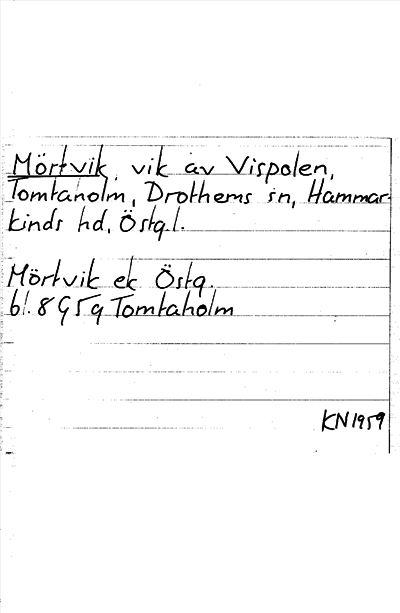 Mörtvik, vik av Vispolen,
Tomtaholm, Drothems sn, Hammar-
kinds hd, Östg.l.
Mörtvik ek Östg.
bl. 8 G 5 g Tomtaholm
KN 1959